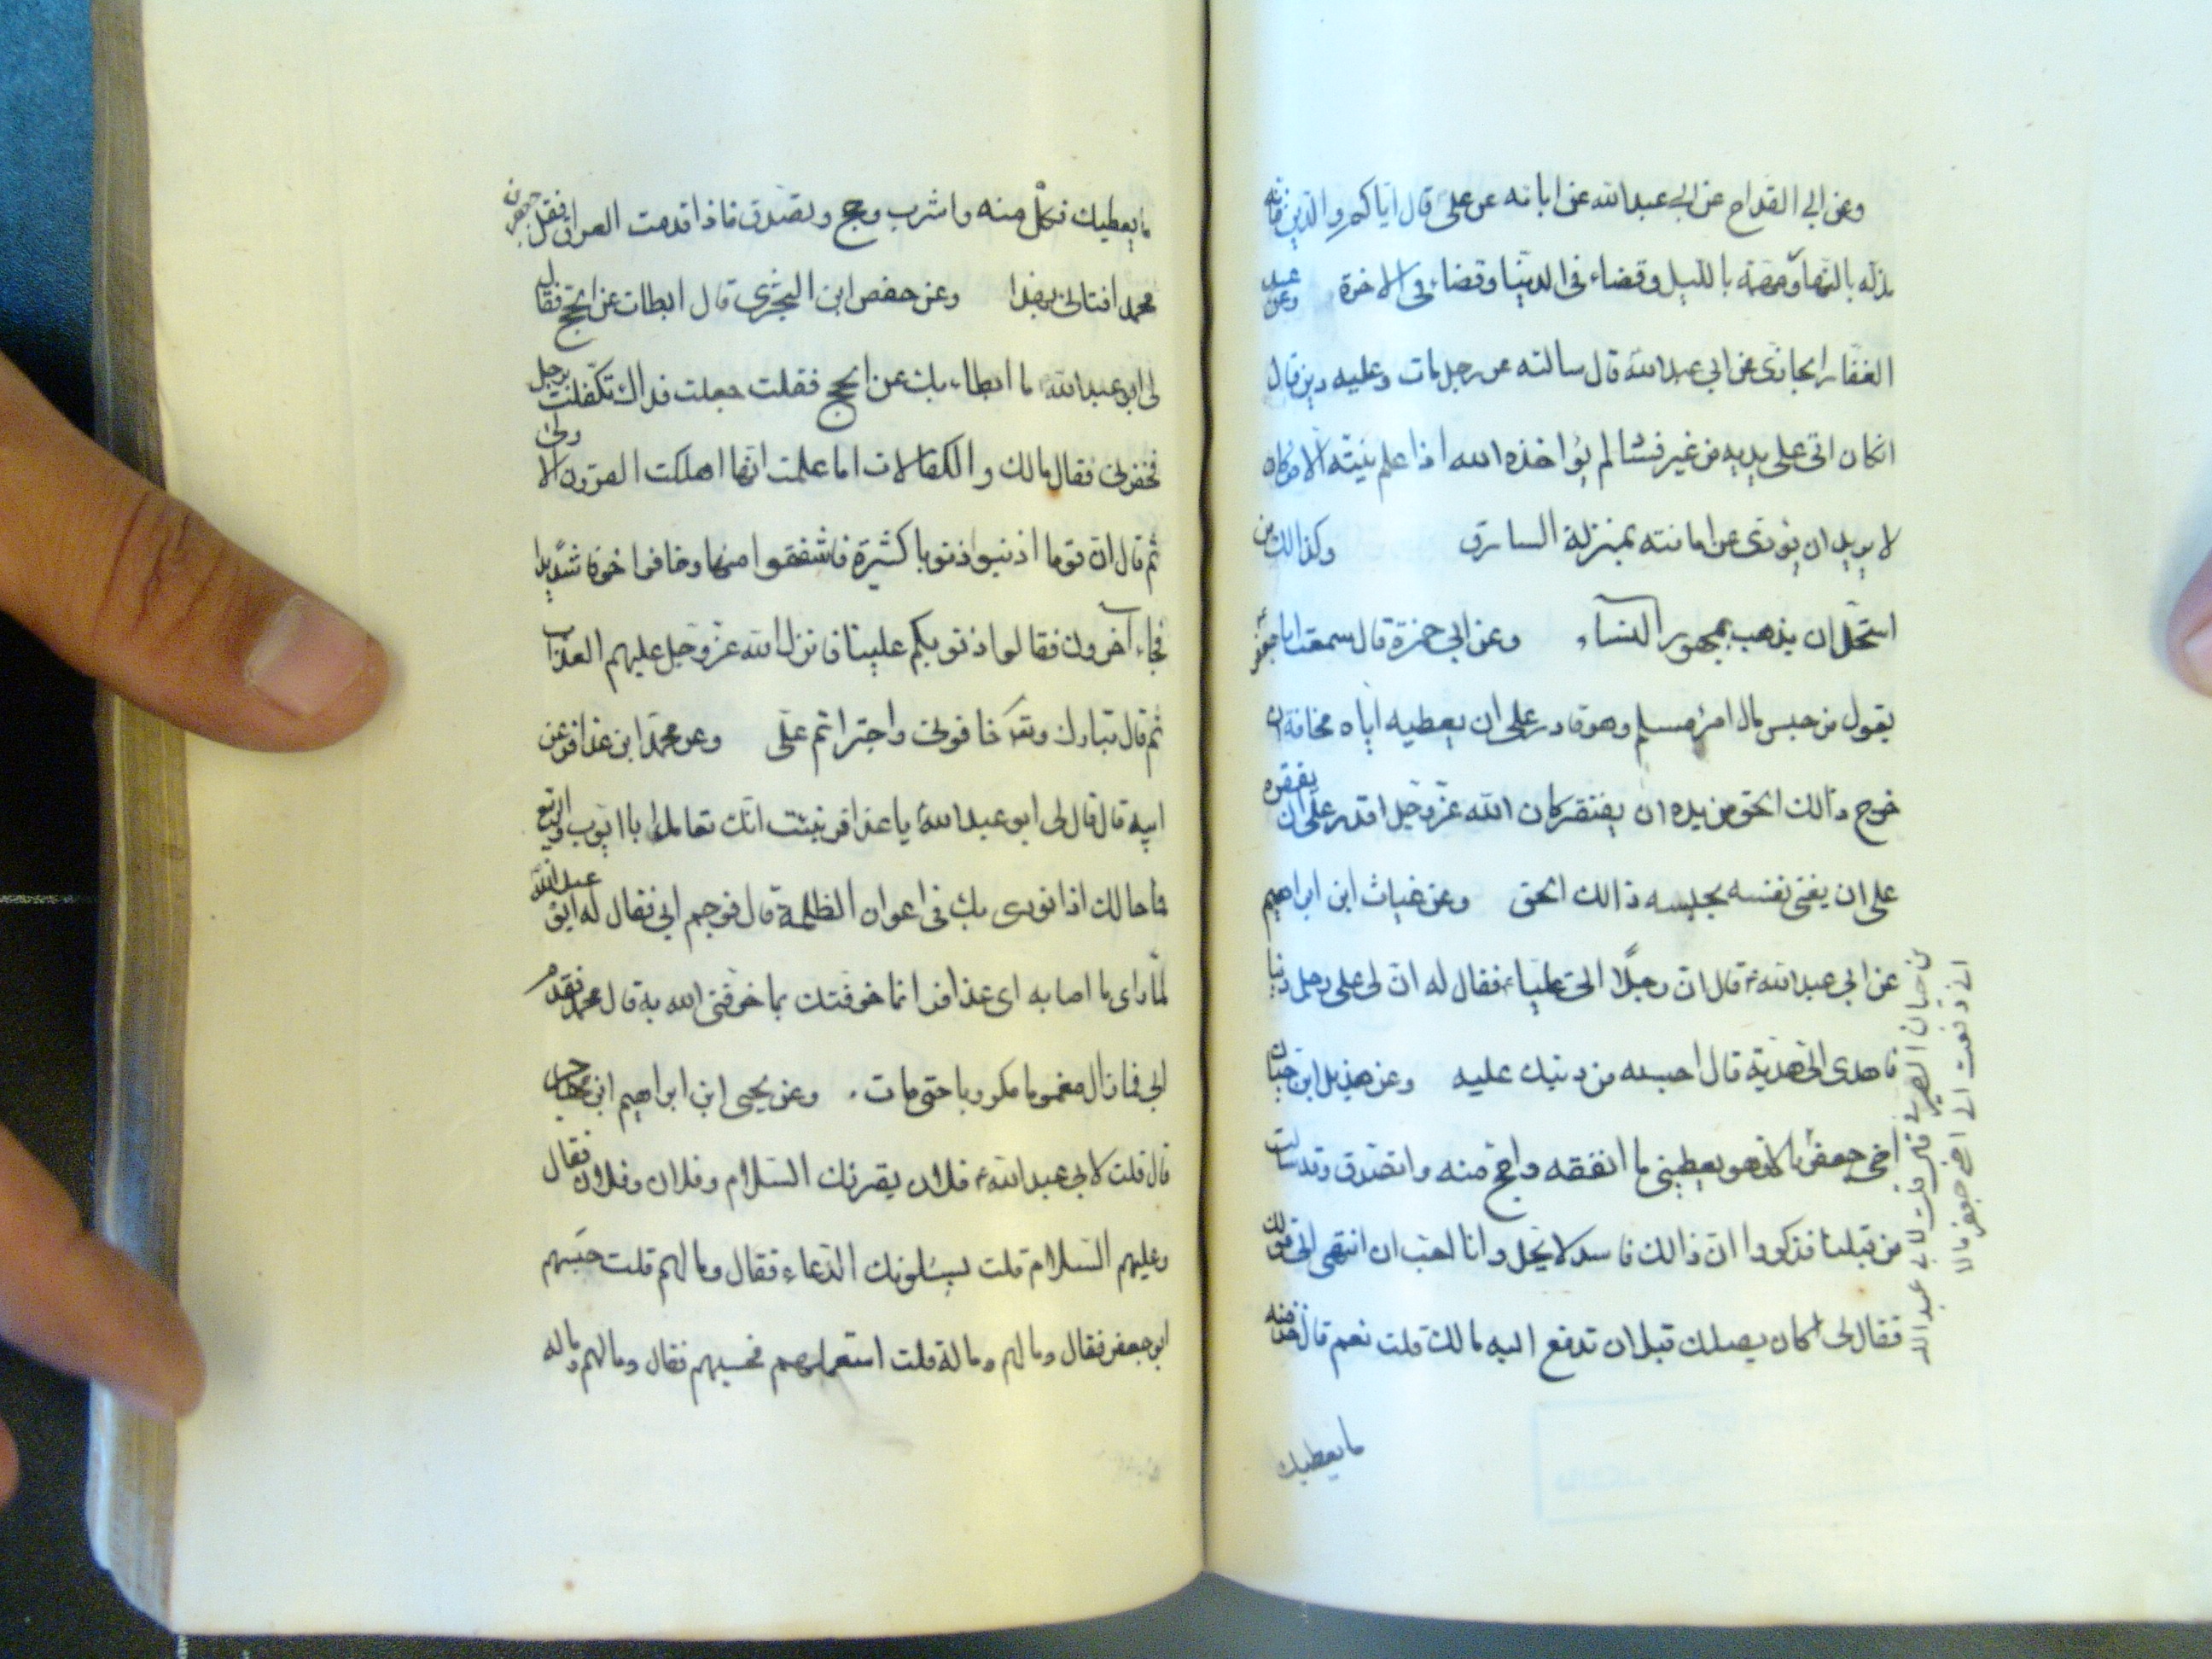 وعن ابي القداح عن ابي عبدالله عن ابائه عن علي قال اياكم والدين فانه
مذلة بالنهار ومهمة بالليل وقضاء في الدنيا وقضاء في الاخرة وعن عبد
الغفار الجازي عن ابي عبدالله قال سالته عن رجل مات وعليه دين قال
انكان اتى على يديه من غير فساد لم يؤاخذه الله اذا علم بنيته الا من كان
لا يريد ان يؤدى عن امانته بمنزلة السارق وكذالك من
استحل ان يذهب بمهور النساء وعن ابي حمزة قال سمعت ابا جعفر
يقول من حبس مال امرء مسلم وهو قادر على ان يعطيه اياه مخافة ان
خرج ذالك الحق من يده ان يفتقر كان الله عز وجل اقدر على ان يفقره
على ان يغنى نفسه بحبسه ذالك الحق وعن غياث ابن ابراهيم
عن ابي عبدالله ع قال ان رجلا اتى عليا ع فقال له ان لي على رجل دينا
فاهدى الى هدية قال احسبه من دينك عليه وعن هذيل ابن حيان
اخي جعفر مالا فهو يعطيني ما انفقه واحج منه واتصدق وقد سالت
من قبلنا فذكروا ان ذالك فاسد لا يحل وانا احب ان انتهى الى قولك
فقال لي اكان يصلك قبل ان تدفع اليه مالك قلت نعم قال خذ منه
ما يعطيك
بن حيان الصيرفي قال قلت لابي عبدالله
اني دفعت الى اخي جعفر مالا
ما يعطيك فكل منه واشرب وحج وتصدق فاذا قدمت العراق فقل جعفر بن
محمد افتاني بهذا وعن حفص ابن البختري قال ابطات عن الحج فقال
لي ابو عبدالله ما ابطاء بك عن الحج فقلت جعلت فداك تكفلت برجل
فخفرني فقال مالك والكفالات اما علمت انها اهلكت القرون الاولى
ثم قال ان قوما اذنبوا ذنوبا كثيرة فاشفقوا منها وخافوا خوفا شديدا
فجاء آخرون فقالوا ذنوبكم علينا فانزل الله عز وجل عليهم العذاب
ثم قال تبارك وتع خافوني واجتراتم علي وعن محمد ابن عذافر عن
ابيه قال قال لي ابو عبدالله يا عذافر نبئت انك تعامل ابا ايوب والربيع
فما حالك اذا نودى بك في اعوان الظلمة قال فوجم ابي فقال له ابو عبدالله
لما راى ما اصابه اى عذافر انما خوفتك بما خوفني الله به قال محمد فقدم
ابي فما زال مغموما مكروبا حتى مات وعن يحيى ابن ابراهيم ابن مهاجر
قال قلت لابي عبدالله ع فلان يقرئك السلام وفلان وفلان فقال
وعليهم السلام قلت يسئلونك الدعاء فقال وما لهم قلت حبسهم
ابو جعفر فقال وما لهم وماله قلت استعملهم فحبسهم فقال وما لهم وماله